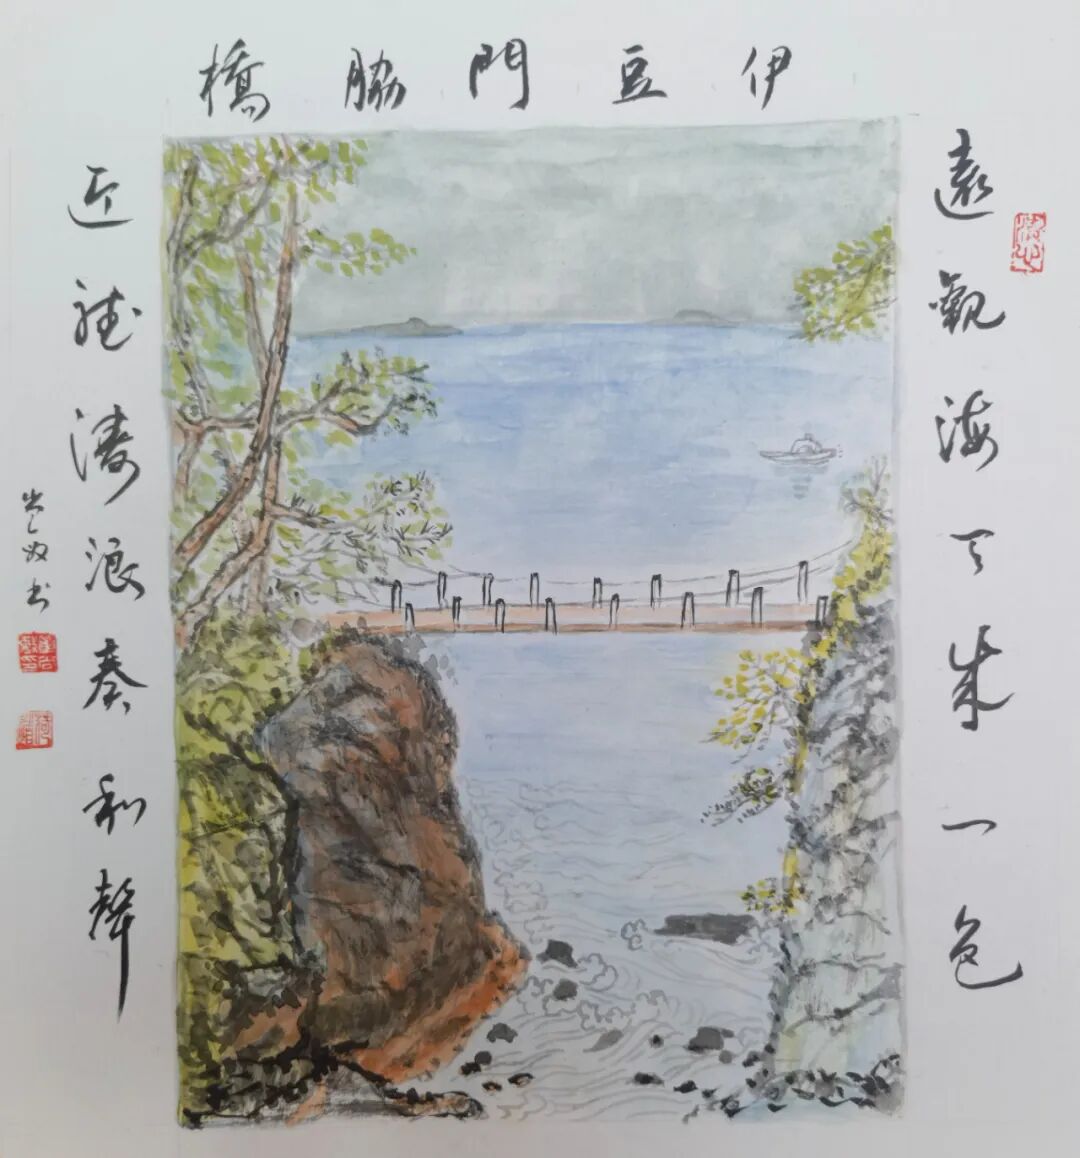 伊豆門脇橋
遠觀海天成一色
近聽濤浪奏和聲
书